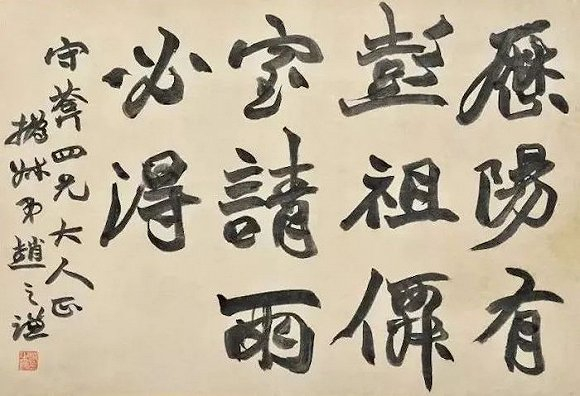 歷陽有
彭祖僊
室請雨
必得
守莽四兄大人正
撝叔弟趙之謙